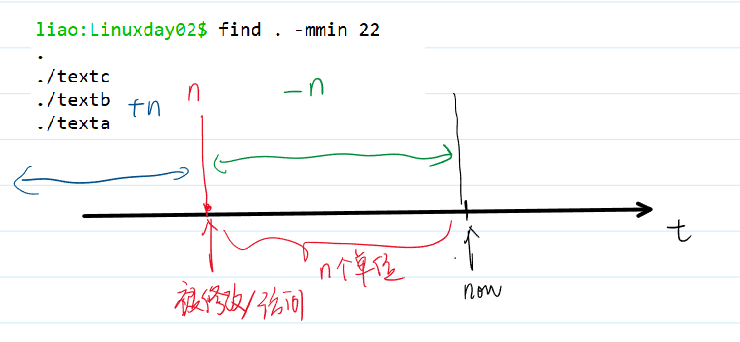 liao:Linuxday02$ find . -mmin 22
.
./textc
./textb
./texta
+n
n
-n
t
n个单位
now
被修改/访问